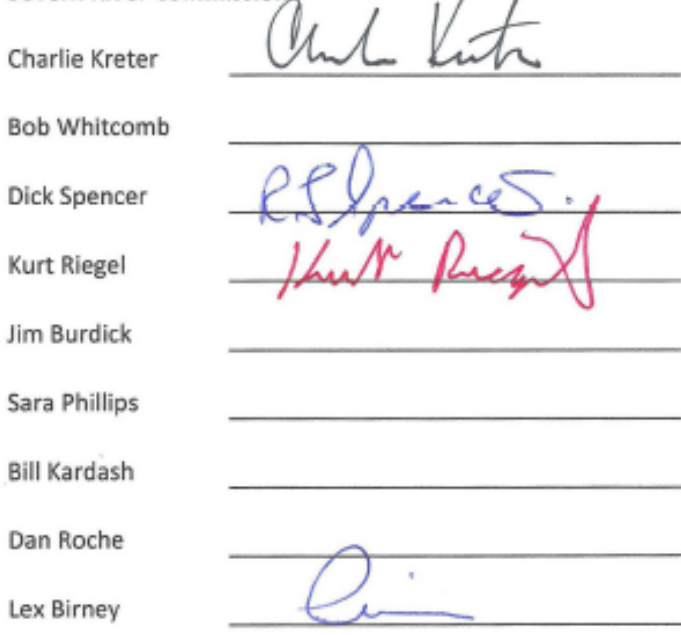 Charlie Kreter Charlie Kreter
Bob Whitcomb
Dick Spencer R.S. Spencer
Kurt Riegel Kurt Riegel
Jim Burdick
Sara Phillips
Bill Kardash
Dan Roche
Lex Birney